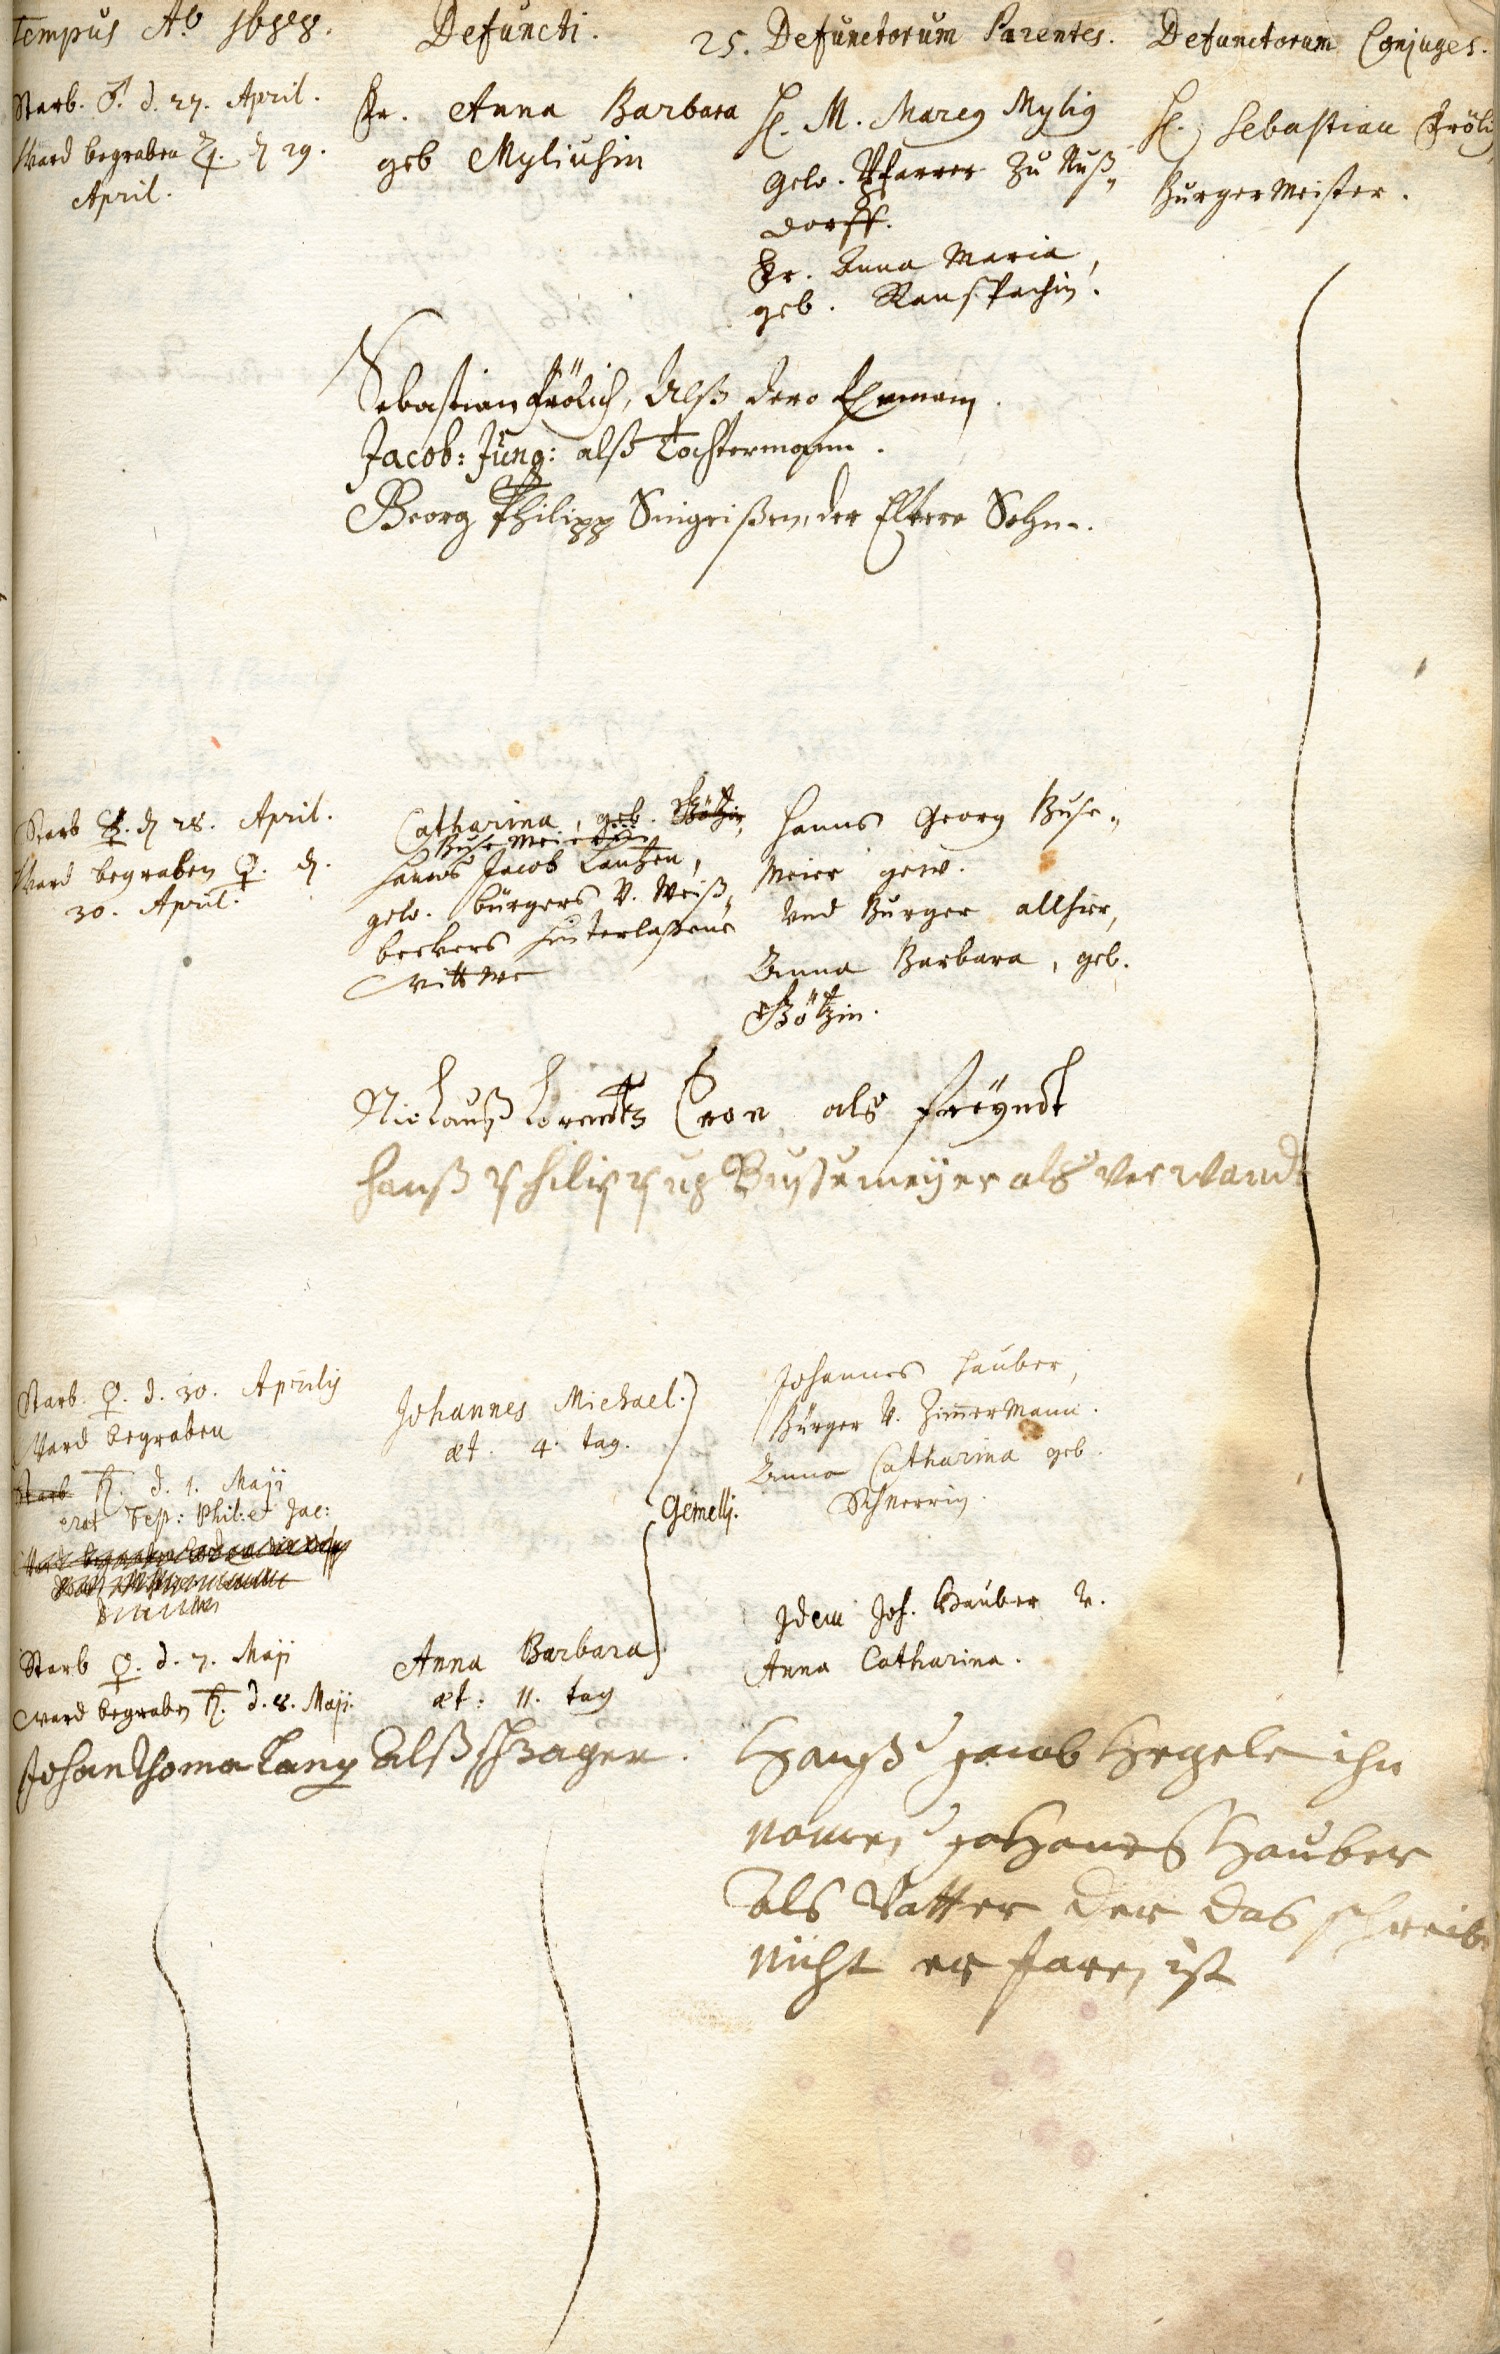 Tempus Aō 1688.
Defuncti.
25. Defunctorum Parentes.
Defunctorum Conjuges.
Starb. ♂. d. 27. April.
Ward begraben ♃. d 29.
April.
Fr. Anna Barbara
geb Myliusin
H. M. Marcg Mylig
gew. Pfarrer zu Nuß„
dorff.
Fr. Anna Maria,
geb. Ranspachin.
H. Sebastian Fröli
Burgermeister.
Sebastian Frölich, Alß dero Ehmann.
Jacob: Jung: alß Tochtermann.
Georg Philipp der Eltere Sohn.
Starb ☿. d 28. April.
Ward begraben ♀. d.
30. April.
Catharina, geb. Bötzin
Busemeierin
Hanns Jacob Lautzen,
gew. bürgers V. Weiß„
beckers hinterlassene
Wittwe
Hanns Georg Buse„
Meier gew.
Vnd Burger allhier,
Anna Barbara, geb.
Bötzin.
Nicklauß Lorentz Cron als freyndt
Hanß Philippus Bussemeÿer als Verwand
Starb. ♀. d. 30. Aprilis
Ward begraben
Starb ♄. d. 1. Maji
erat Fest: Phil: et Jac:
Johannes Michael.
æt. 4. tag.
Gemelli.
Johannes Hauber,
Bürger V. Zimmermann.
Anna Catharina geb.
Schnerrin.
Starb ♀. d. 7. Maji
Ward begraben ♄. d. 8. Maji.
Anna Barbara
æt: 11. tag
Idem Joh. Hauber V.
Anna Catharina.
Johan Thoma Lang Alß schwager.
Hanß Jacob Hegele ihn
namen Johanes Hauber
Als Vatter der das schreibe
nicht er faren ist